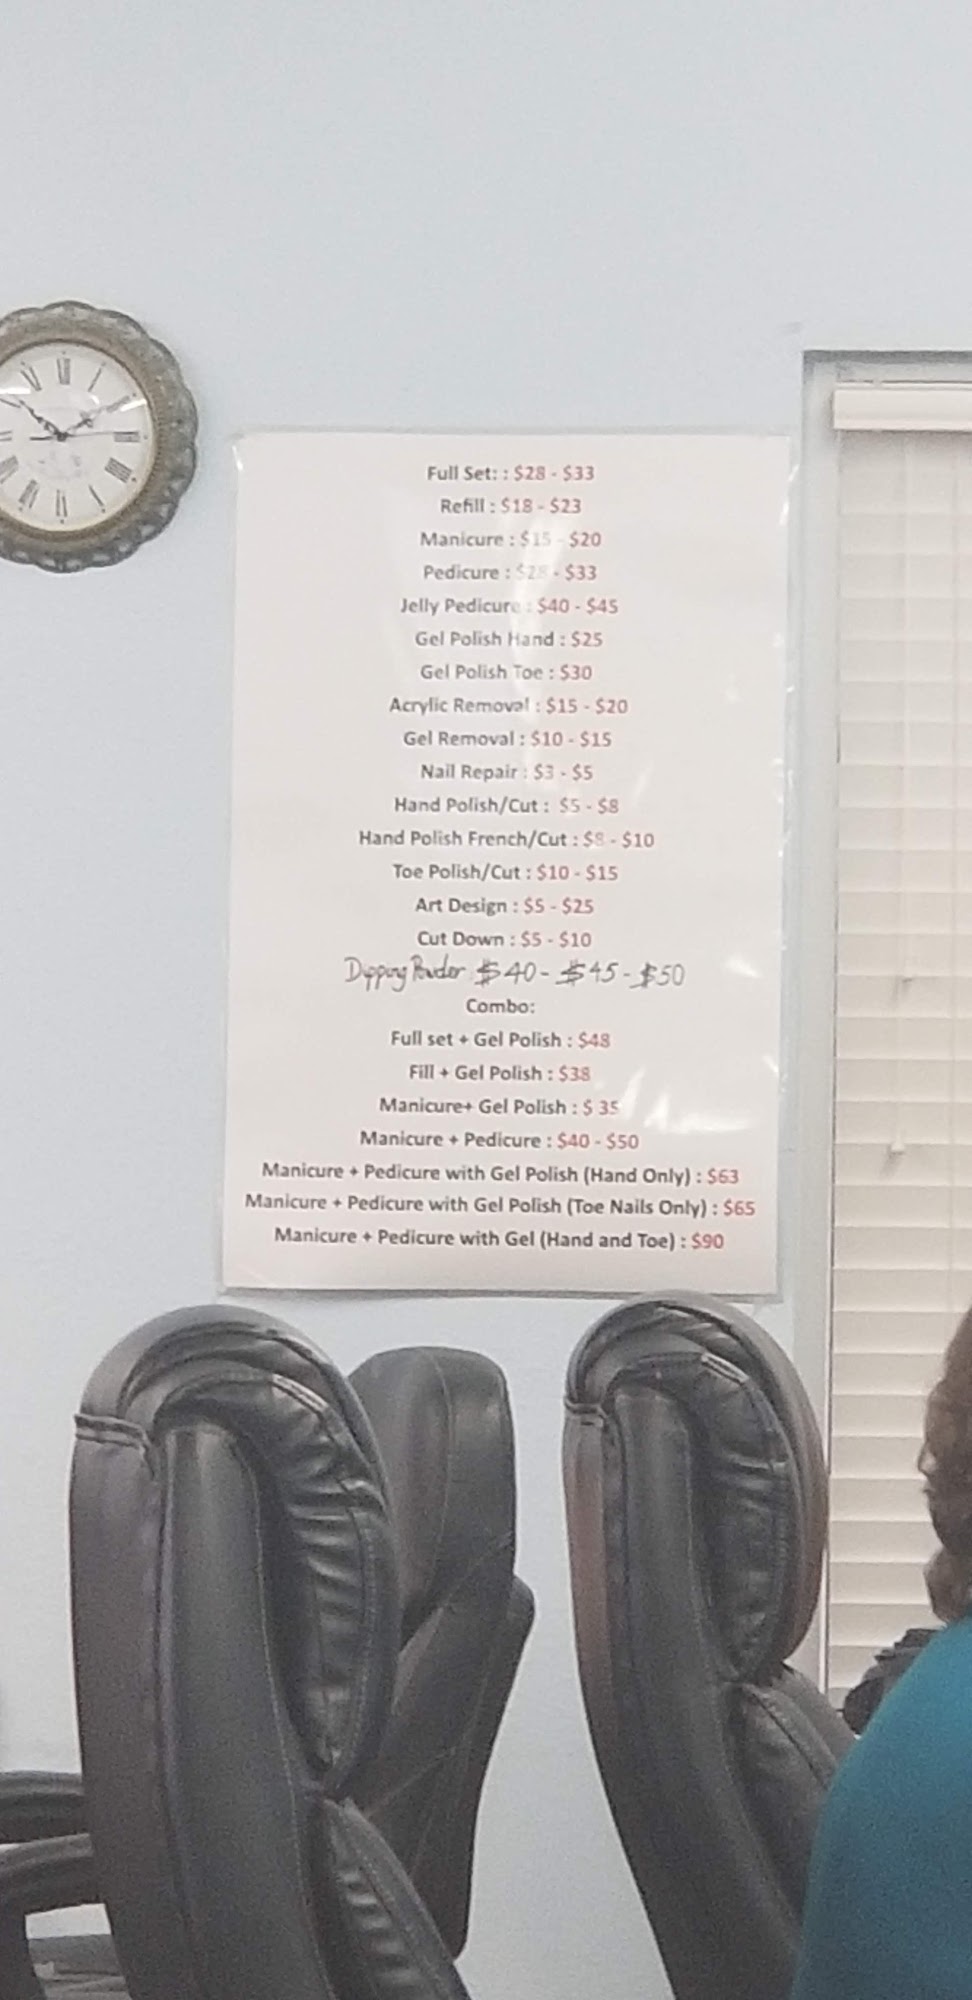 Full Set: : $28 - $33
Refill : $18 - $23
Manicure : $15 - $20
Pedicure : $28 - $33
Jelly Pedicure : $40 - $45
Gel Polish Hand : $25
Gel Polish Toe : $30
Acrylic Removal : $15 - $20
Gel Removal : $10 - $15
Nail Repair : $3 - $5
Hand Polish/Cut : $5 - $8
Hand Polish French/Cut : $8 - $10
Toe Polish/Cut : $10 - $15
Art Design : $5 - $25
Cut Down : $5 - $10
Dipping Powder $40 - $45 - $50
Combo:
Full set + Gel Polish : $48
Fill + Gel Polish : $38
Manicure+ Gel Polish : $ 35
Manicure + Pedicure : $40 - $50
Manicure + Pedicure with Gel Polish (Hand Only) : $63
Manicure + Pedicure with Gel Polish (Toe Nails Only) : $65
Manicure + Pedicure with Gel (Hand and Toe) : $90